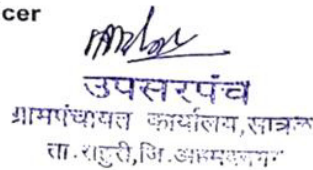 cer
उपसरपंच
ग्रामपंचायत कार्यालय,सात्रळ
ता.राहुरी,जि.अहमदनगर